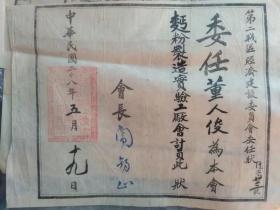 第二戰區經濟建設委員會委任狀
委任董人俊為本會
麪粉製造實驗工廠會計員此狀
會長
中華民國二十八年五月十九日